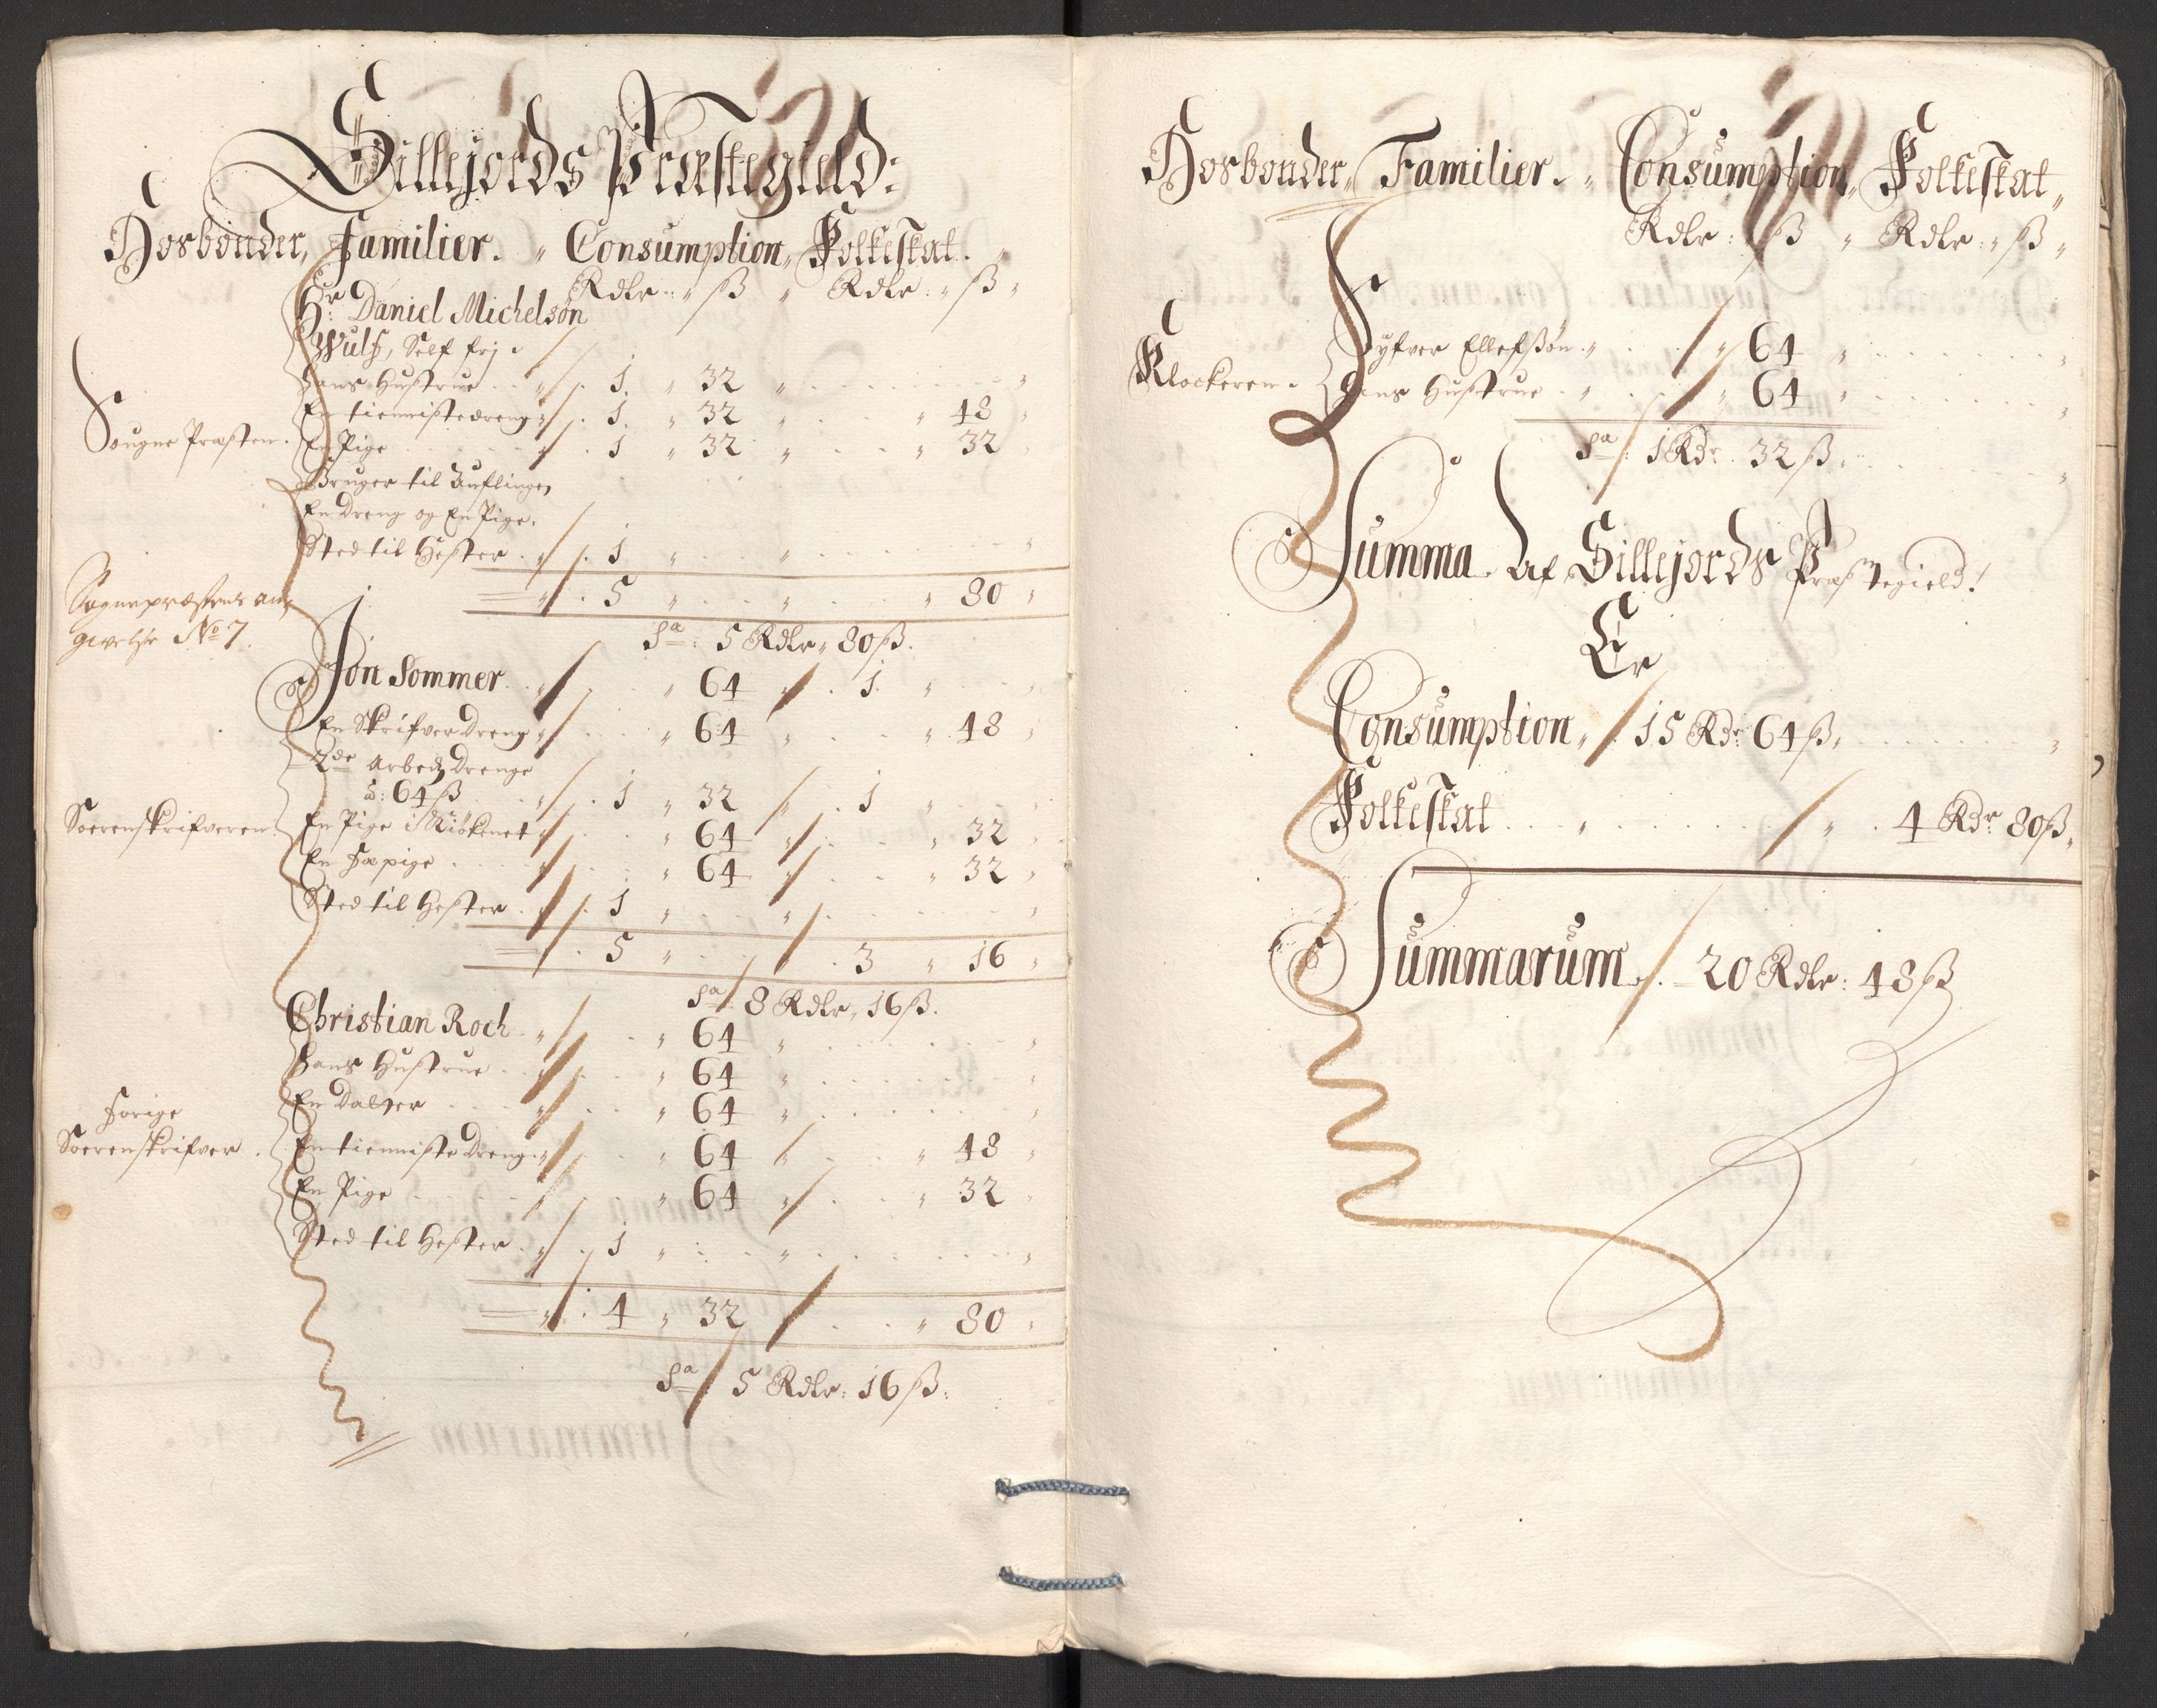 Sillejords Præstegield:
Hosbonder, Familier. „ Consumption „ Folkeskat. „
Rdlr: „ ß „ Rdlr: „ ß „
Hr: Daniel Michelsøn
Wulf, Self frj.
Hans Hustrue . . „ . 1. „ 32 „ . . . . „
En tienniste dreng „ . 1. „ 32 „ . . „ 48 „
Sougne Præsten. En Pige . . . „ . 1 „ 32 „ . . „ 32 „
Bruger til Auflingen
En Dreng og En Pige.
Sted til Hester . „ . 1 „ . . „ . . . „
Sognepræstens an „ . 5 „ . . „ . . „ 80 „
givelse No 7.
Sa: 5 Rdlr „ 80 ß.
Jon Sommer . . „ . . „ 64 „ . 1. „ . . „
En Skrifver Dreng „ . . „ 64 „ . . „ 48 „
2de Arbeds Drenge
a: 64 ß . . „ . 1 „ 32 „ . 1 „ . . „
Soerenskrifveren. En Pige i Kiøkenet „ . . „ 64 „ . . „ 32 „
En Fæpige . . . „ . . „ 64 „ . . „ 32 „
Sted til Hester . „ . 1 „ . . „ . . . „
„ . 5 „ . . „ . 3 „ 16 „
Sa: 8 Rdlr „ 16 ß.
Christian Roch . „ . . „ 64 „ . . . „
Hans Hustrue . . „ . . „ 64 „ . . . „
En Datter . . . „ . . „ 64 „ . . . „
Forige
Soerenskrifver. En tienniste Dreng „ . . „ 64 „ . . „ 48 „
En Pige . . . „ . . „ 64 „ . . „ 32 „
Sted til Hester . „ . 1 „ . . „ . . . „
„ . 4 „ 32 „ . . „ 80 „
Sa: 5 Rdlr: 16 ß.
Hosbonder „ Familier. „ Consumption „ Folkeskat „
Rdlr: „ ß „ Rdlr: „ ß „
Syfver Ellefsøn . „ . . „ 64 „ . . . „
Klockeren. Hans Hustrue . „ . . „ 64 „ . . . „
Sa: 1 Rdr. 32 ß. . . . „
Summa Af Sillejords Præstegield!
Er
Consumption „ . 15 Rdr 64 ß. . . . „
Folkeskat . . „ . . . „ . 4 Rdr 80 ß.
Summarum . 20 Rdlr: 48 ß